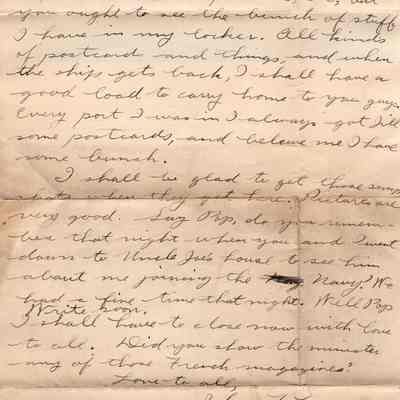 you ought to see the bunch of stuff
I have in my locker. All kinds
of postcard and things, and when
the ship gets back, I shall have a
good load to carry home to you guys.
Every port I was in I always got I'll
some postcards, and believe me I have
some bunch.
I shall be glad to get those snap
shots when they get here. Pictures are
very good. Say Pop, do you remem-
ber that night when you and I went
down to Uncle Joe's house to see him
about me joining the Navy? We
had a fine time that night. Well Pop
Write soon.
I shall have to close now with love
to all. Did you show the minister
any of those French magazines?
Love to all,